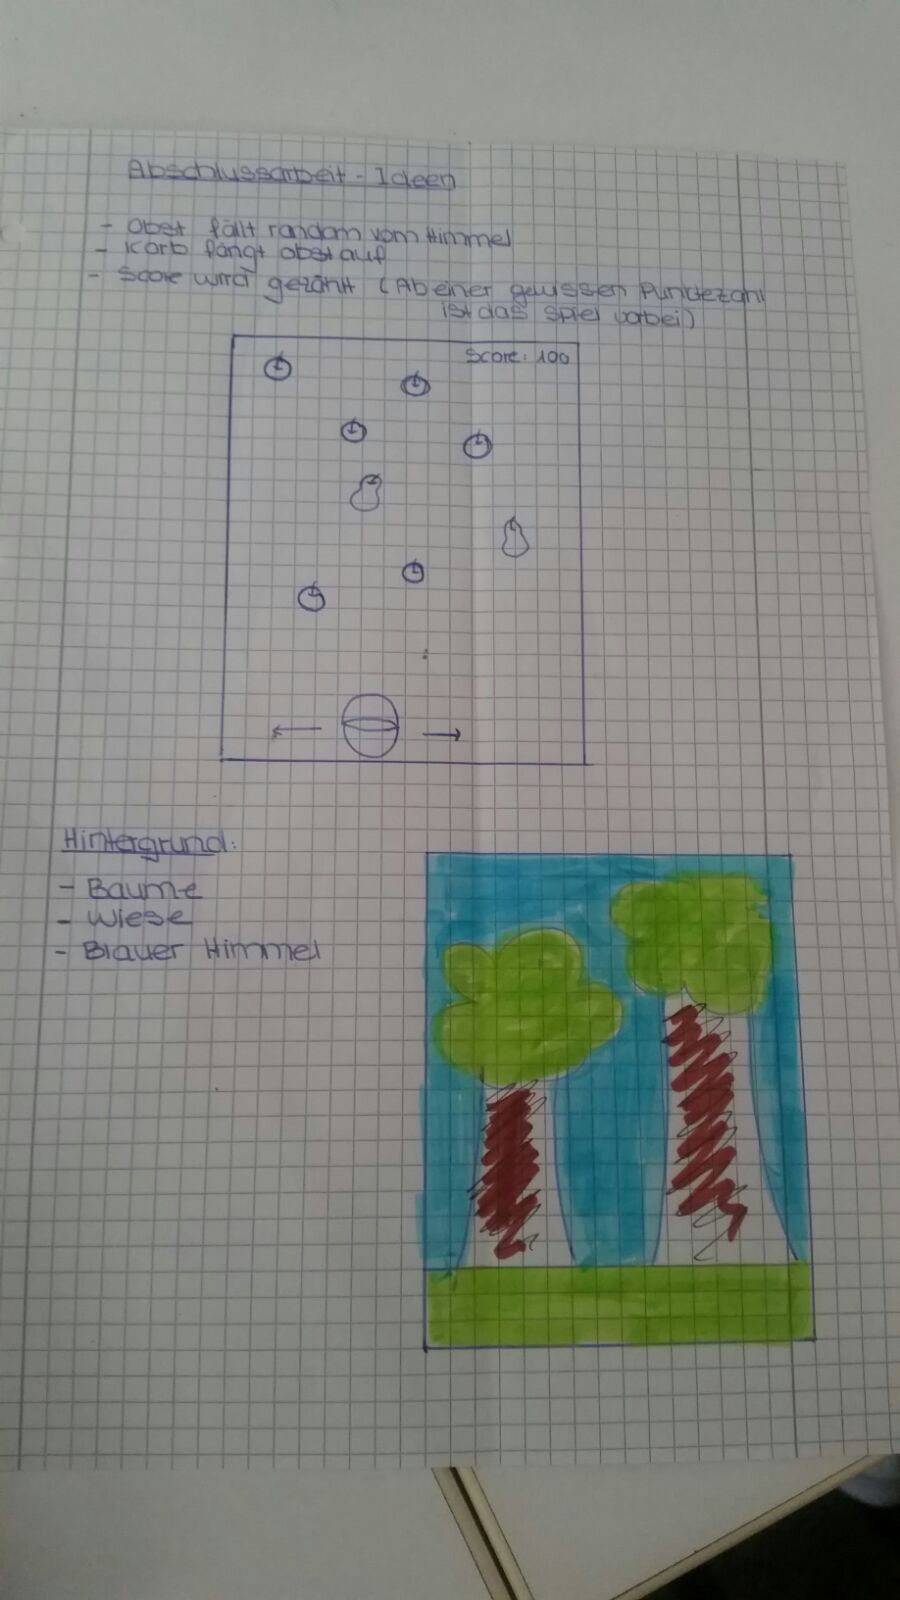 Abschlussarbeit - Ideen
- Obst fällt random vom Himmel
- Korb fängt obst auf
- Score wird gezählt (Ab einer gewissen Punktezahl
ist das Spiel vorbei)
Score: 100
Hintergrund:
- Bäume
- Wiese
- Blauer Himmel